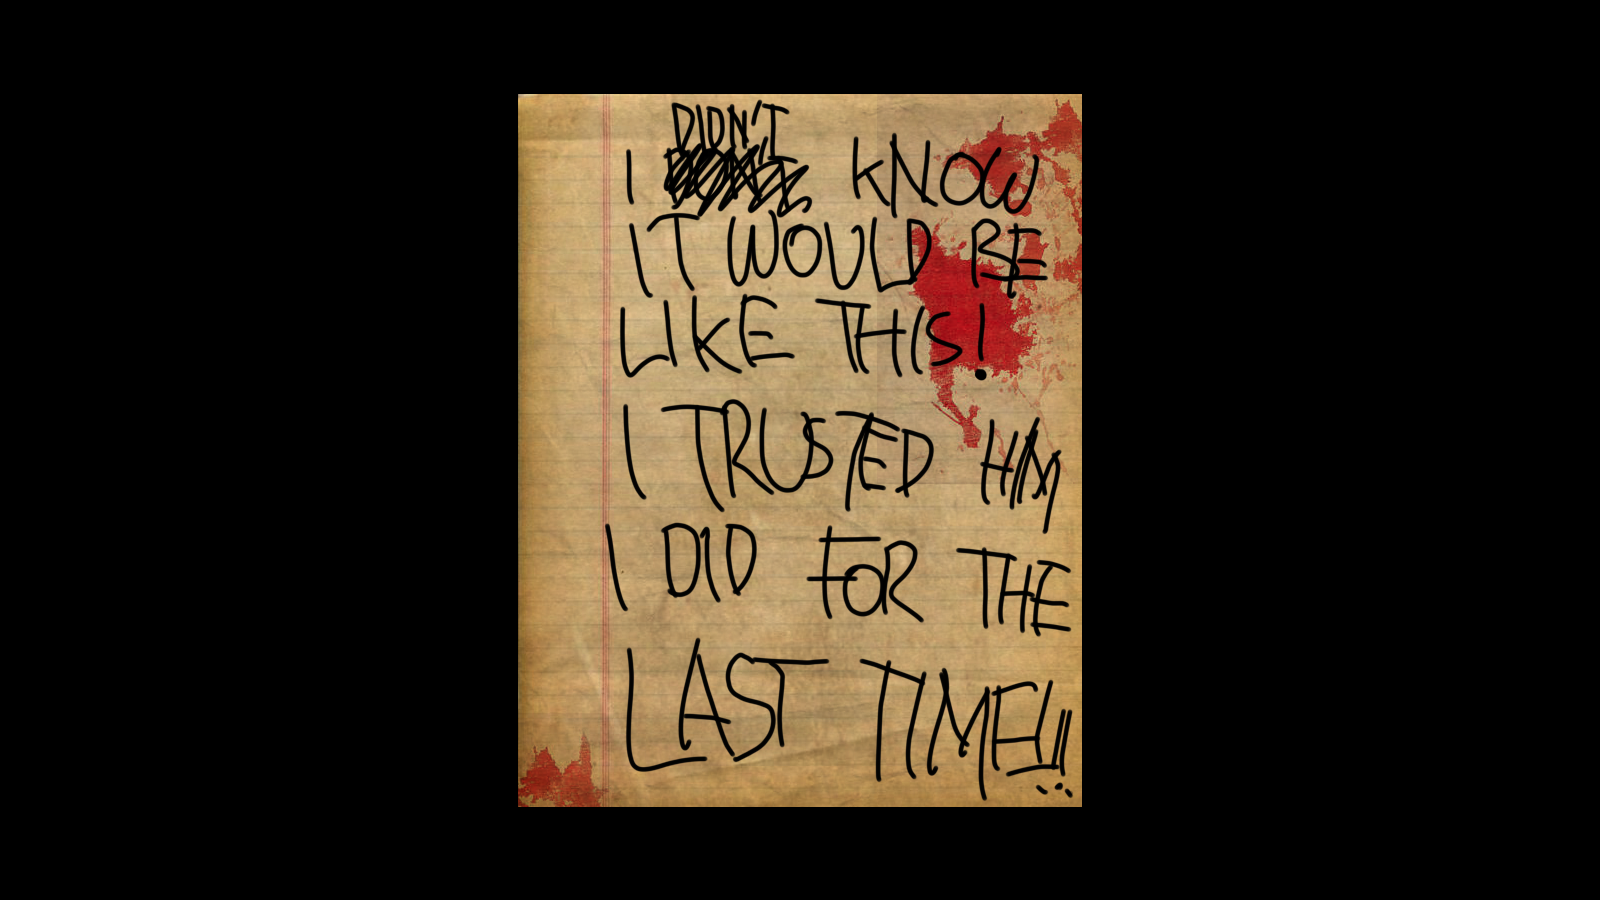 DIDN'T
I KNOW
IT WOULD BE
LIKE THIS!
I TRUSTED HIM
I DID FOR THE
LAST TIME!!!